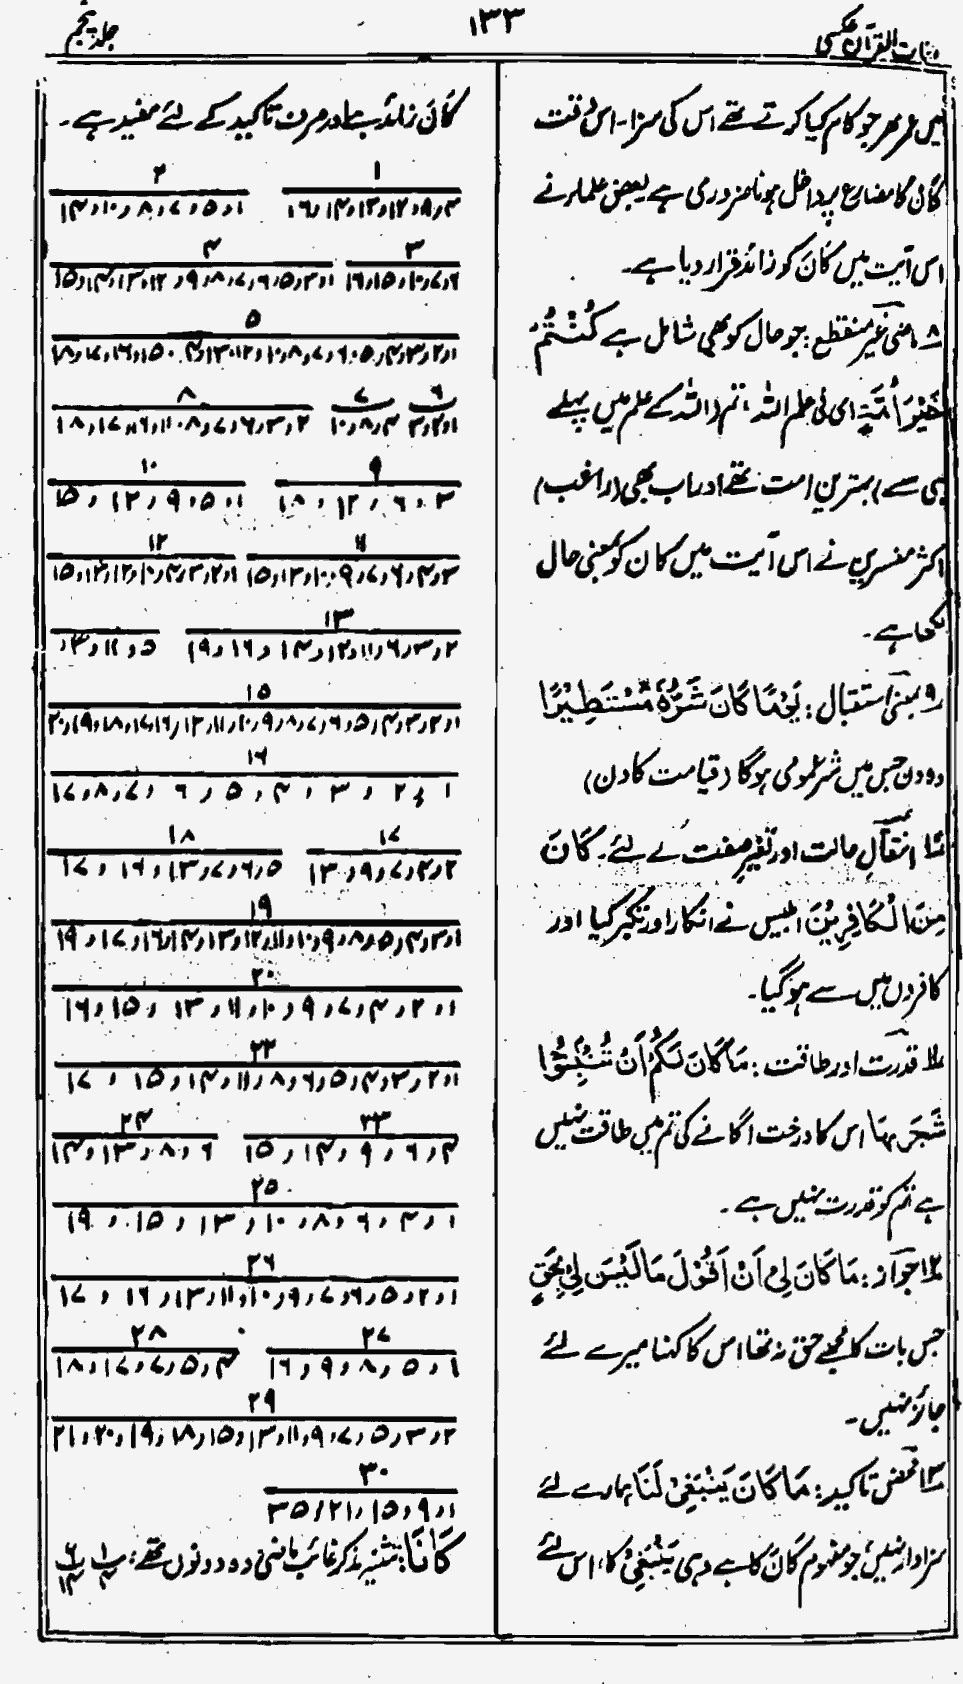 لغات القرآن عکسی
۱۳۳
جلد پنجم
میں عمر بھر جو کام کیا کرتے تھے اس کی سزا۔ اس وقت
کان کا مضارع پر داخل ہونا ضروری ہے بعض علماء نے
اس آیت میں کان کو زائد قرار دیا ہے۔
۸ ماضی غیر منقطع: جو حال کو بھی شامل ہے کُنْتُمْ
خَیْرَ اُمَّۃٍ ای فی علم اللہ، تم (اللہ کے علم میں پہلے
ہی سے) بہترین امت تھے اور اب بھی (راغب)
اکثر مفسرین نے اس آیت میں کان کو بمعنی حال
لکھا ہے۔
۹ بمعنی استقبال: یَوْمًا کَانَ شَرُّہٗ مُسْتَطِیْرًا
وہ دن جس میں شر عمومی ہوگا (قیامت کا دن)
۱۰ انتقال حالت اور تغیر صفت کے لئے۔ کَانَ
مِنَ الْکَافِرِیْنَ ابلیس نے انکار اور تکبر کیا اور
کافروں میں سے ہو گیا۔
۱۱ قدرت اور طاقت: مَا کَانَ لَکُمْ اَنْ تُنْبِتُوْا
شَجَرَہَا اس کا درخت اگانے کی تم میں طاقت نہیں
ہے تم کو قدرت نہیں ہے۔
۱۲ جواز: مَا کَانَ لِیْ اَنْ اَقُوْلَ مَا لَیْسَ لِیْ بِحَقٍّ
جس بات کا مجھے حق نہ تھا اس کا کہنا میرے لئے
جائز نہیں۔
۱۳ محض تاکید: مَا کَانَ یَنْبَغِیْ لَنَا ہمارے لئے
سزاوار نہیں جو مفہوم کَانَ کا ہے وہی یَنْبَغِیْ کا، اس لئے
کَانَ زائد ہے اور صرف تاکید کے لئے مفید ہے۔
۱ ۲
۴، ۸، ۱۲، ۱۳، ۱۴، ۱۶ ۱، ۵، ۷، ۸، ۱۰، ۱۴
۳ ۴
۶، ۷، ۱۰، ۱۵، ۱۶ ۱، ۳، ۵، ۶، ۷، ۸، ۹، ۱۲، ۱۳، ۱۴، ۱۵
۵
۱، ۲، ۳، ۴، ۵، ۶، ۷، ۸، ۱۰، ۱۲، ۱۳، ۱۴، ۱۵، ۱۶، ۱۷، ۱۸
۶ ۷ ۸
۱، ۲، ۳ ۴، ۸، ۱۰ ۲، ۳، ۶، ۷، ۸، ۱۱، ۱۶، ۱۷، ۱۸
۹ ۱۰
۳، ۶، ۱۲، ۱۸ ۱، ۵، ۹، ۱۲، ۱۵
۱۱ ۱۲
۳، ۴، ۶، ۷، ۹، ۱۰، ۱۳، ۱۵ ۱، ۲، ۳، ۴، ۱۰، ۱۲، ۱۳، ۱۵
۱۳
۲، ۳، ۶، ۱۱، ۱۲، ۱۴، ۱۶، ۱۹ ۵، ۱۱، ۱۳
۱۵
۱، ۲، ۳، ۴، ۵، ۶، ۷، ۸، ۹، ۱۰، ۱۱، ۱۳، ۱۶، ۱۷، ۱۸، ۱۹، ۲۰
۱۶
۱، ۲، ۳، ۴، ۵، ۶، ۷، ۸، ۱۷
۱۷ ۱۸
۲، ۴، ۷، ۹، ۱۳ ۵، ۶، ۷، ۱۳، ۱۶، ۱۷
۱۹
۱، ۳، ۴، ۵، ۸، ۹، ۱۰، ۱۱، ۱۲، ۱۳، ۱۴، ۱۶، ۱۷، ۱۹
۲۰
۱، ۲، ۴، ۷، ۹، ۱۰، ۱۱، ۱۳، ۱۵، ۱۶
۲۲
۱، ۲، ۳، ۴، ۵، ۶، ۸، ۱۱، ۱۴، ۱۵، ۱۷
۲۳ ۲۴
۴، ۶، ۹، ۱۴، ۱۵ ۶، ۸، ۱۳، ۱۴
۲۵
۱، ۴، ۶، ۸، ۱۰، ۱۳، ۱۵، ۱۹
۲۶
۱، ۲، ۵، ۶، ۷، ۹، ۱۰، ۱۱، ۱۳، ۱۶، ۱۷
۲۷ ۲۸
۱، ۵، ۸، ۹، ۱۶ ۴، ۵، ۷، ۱۷، ۱۸
۲۹
۲، ۳، ۵، ۷، ۹، ۱۱، ۱۳، ۱۵، ۱۸، ۱۹، ۲۰، ۲۱
۳۰
۱، ۹، ۱۵، ۲۱، ۳۵
کَانَا: تثنیہ مذکر غائب ماضی وہ دونوں تھے؛ ۱/۴ ۶/۱۴